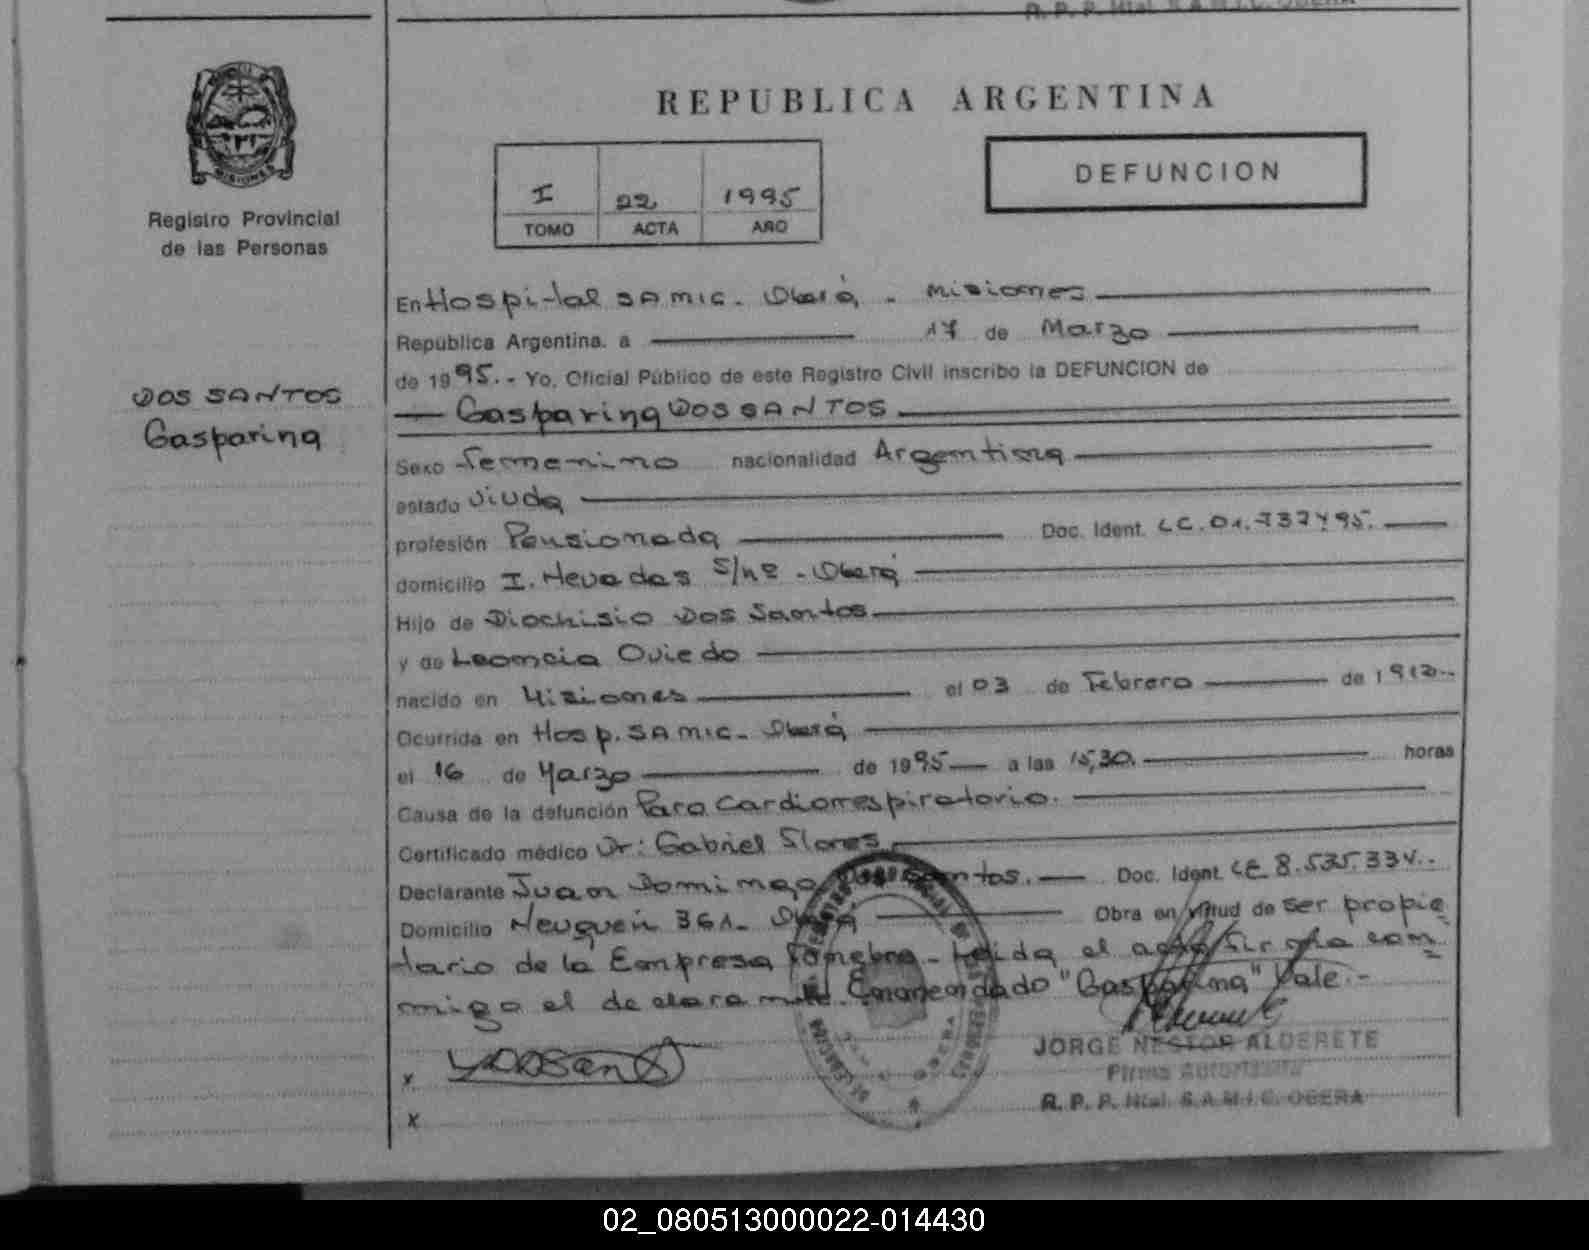 REPUBLICA ARGENTINA
I 22 1995
TOMO ACTA AÑO
DEFUNCION
MISIONES
Registro Provincial
de las Personas
DOS SANTOS
Gasparina
En Hospital SAMIC - Oberá - Misiones
República Argentina, a 17 de Marzo
de 1995.- Yo, Oficial Público de este Registro Civil inscribo la DEFUNCION de
Gasparina DOS SANTOS
Sexo Femenino nacionalidad Argentina
estado Viuda
profesión Pensionada Doc. Ident. LC.
domicilio I. Nevadas S/nº - Oberá
Hijo de Dos Santos
y de Leoncia Oviedo
nacido en Misiones el 03 de Febrero de
Ocurrida en Hosp. SAMIC - Oberá
el 16 de Marzo de 1995 a las 15,30. horas
Causa de la defunción Paro Cardiorrespiratorio.
Certificado médico Dr: Gabriel Flores
Declarante Juan Domingo Dos Santos. Doc. Ident.
Domicilio Neuquén 361 - Oberá Obra en virtud de ser propie
tario de la Empresa Fúnebre - Leída el acta firma con
migo el declarante. Enmendado "Gasparina" Vale.-
x
JORGE NESTOR ALDERETE
Firma Autorizada
x
R. P. P. Htal. S.A.M.I.C. OBERA
02_080513000022-014430